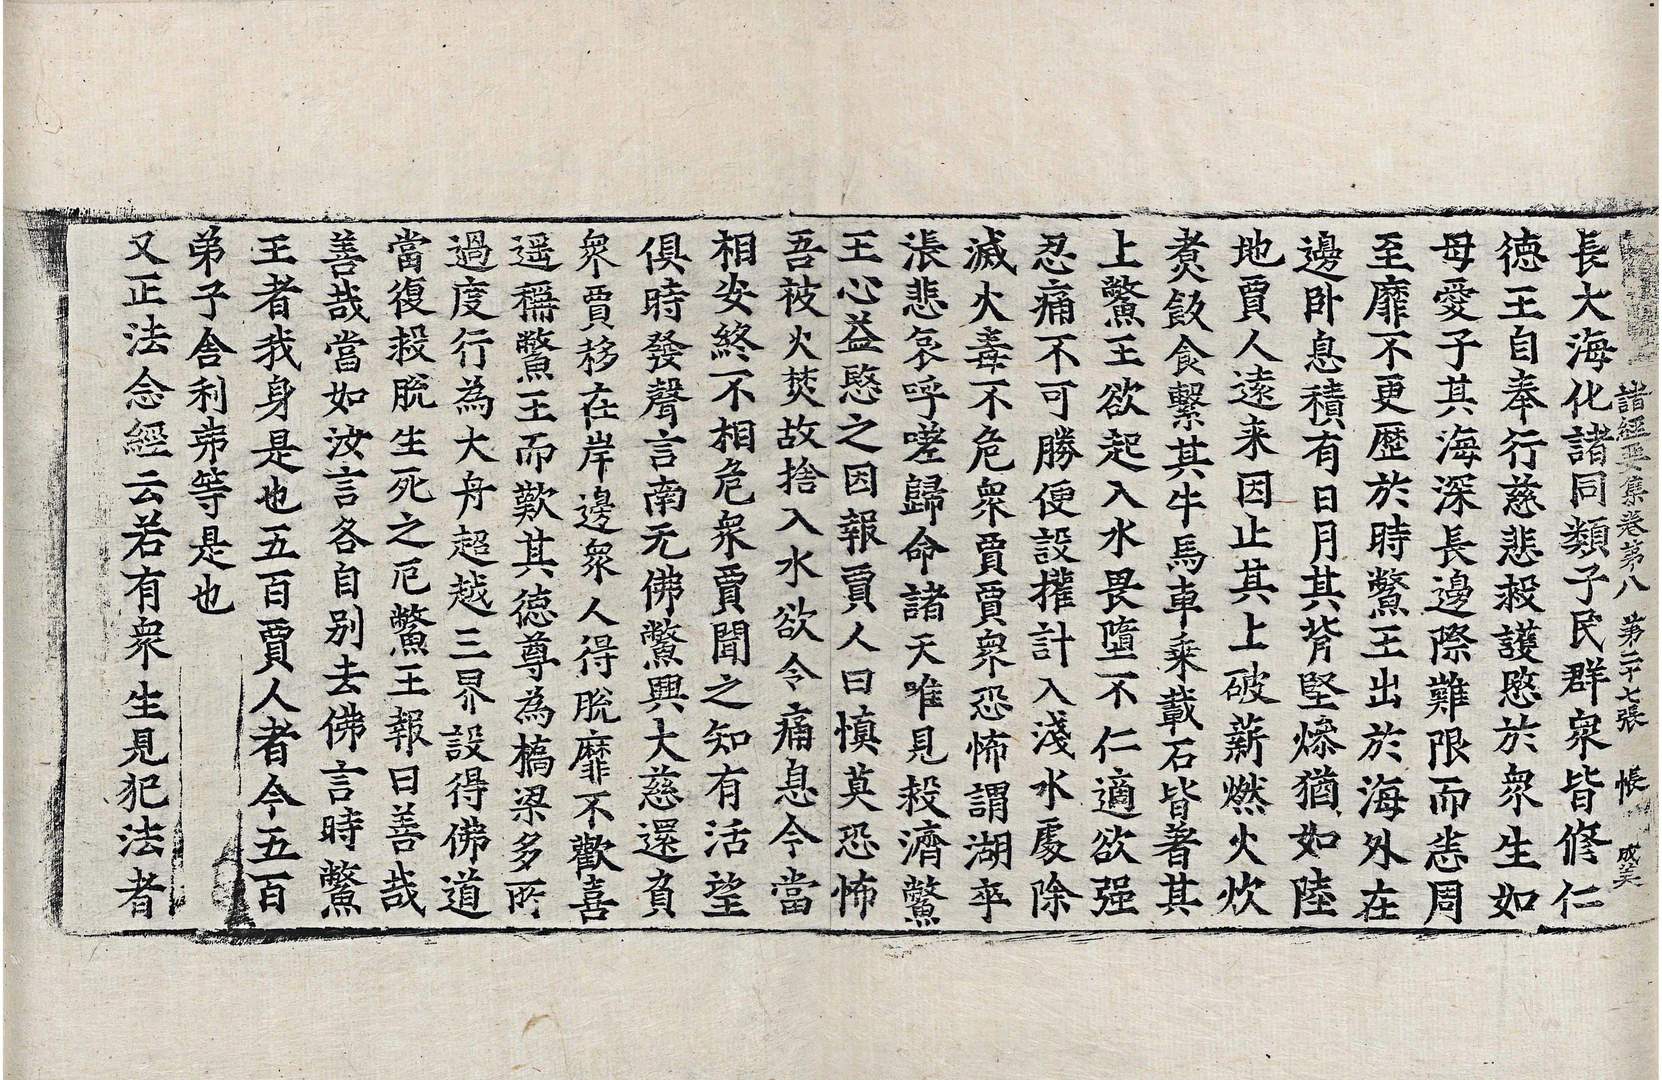 諸經要集卷第八 第二十七張 帳 成美
長大海化諸同類子民群衆皆修仁
德王自奉行慈悲救護愍於衆生如
母愛子其海深長邊際難限而悉周
至靡不更歷於時鱉王出於海外在
邊卧息積有日月其背堅燥猶如陸
地賈人遠来因止其上破薪燃火炊
煑飯食繫其牛馬車乗載石皆著其
上鱉王欲起入水畏墮不仁適欲强
忍痛不可勝便設權計入淺水處除
滅火毒不危衆賈賈衆恐怖謂湖卒
漲悲哀呼嗟歸命諸天唯見救濟鱉
王心益愍之因報賈人曰慎莫恐怖
吾被火焚故捨入水欲令痛息今當
相安終不相危衆賈聞之知有活望
俱時發聲言南无佛鱉興大慈還負
衆賈移在岸邊衆人得脫靡不歡喜
遥稱鱉王而歎其德尊為橋梁多所
過度行為大舟超越三界設得佛道
當復救脫生死之厄鱉王報曰善哉
善哉當如汝言各自别去佛言時鱉
王者我身是也五百賈人者今五百
弟子舍利弗等是也
又正法念經云若有衆生見犯法者